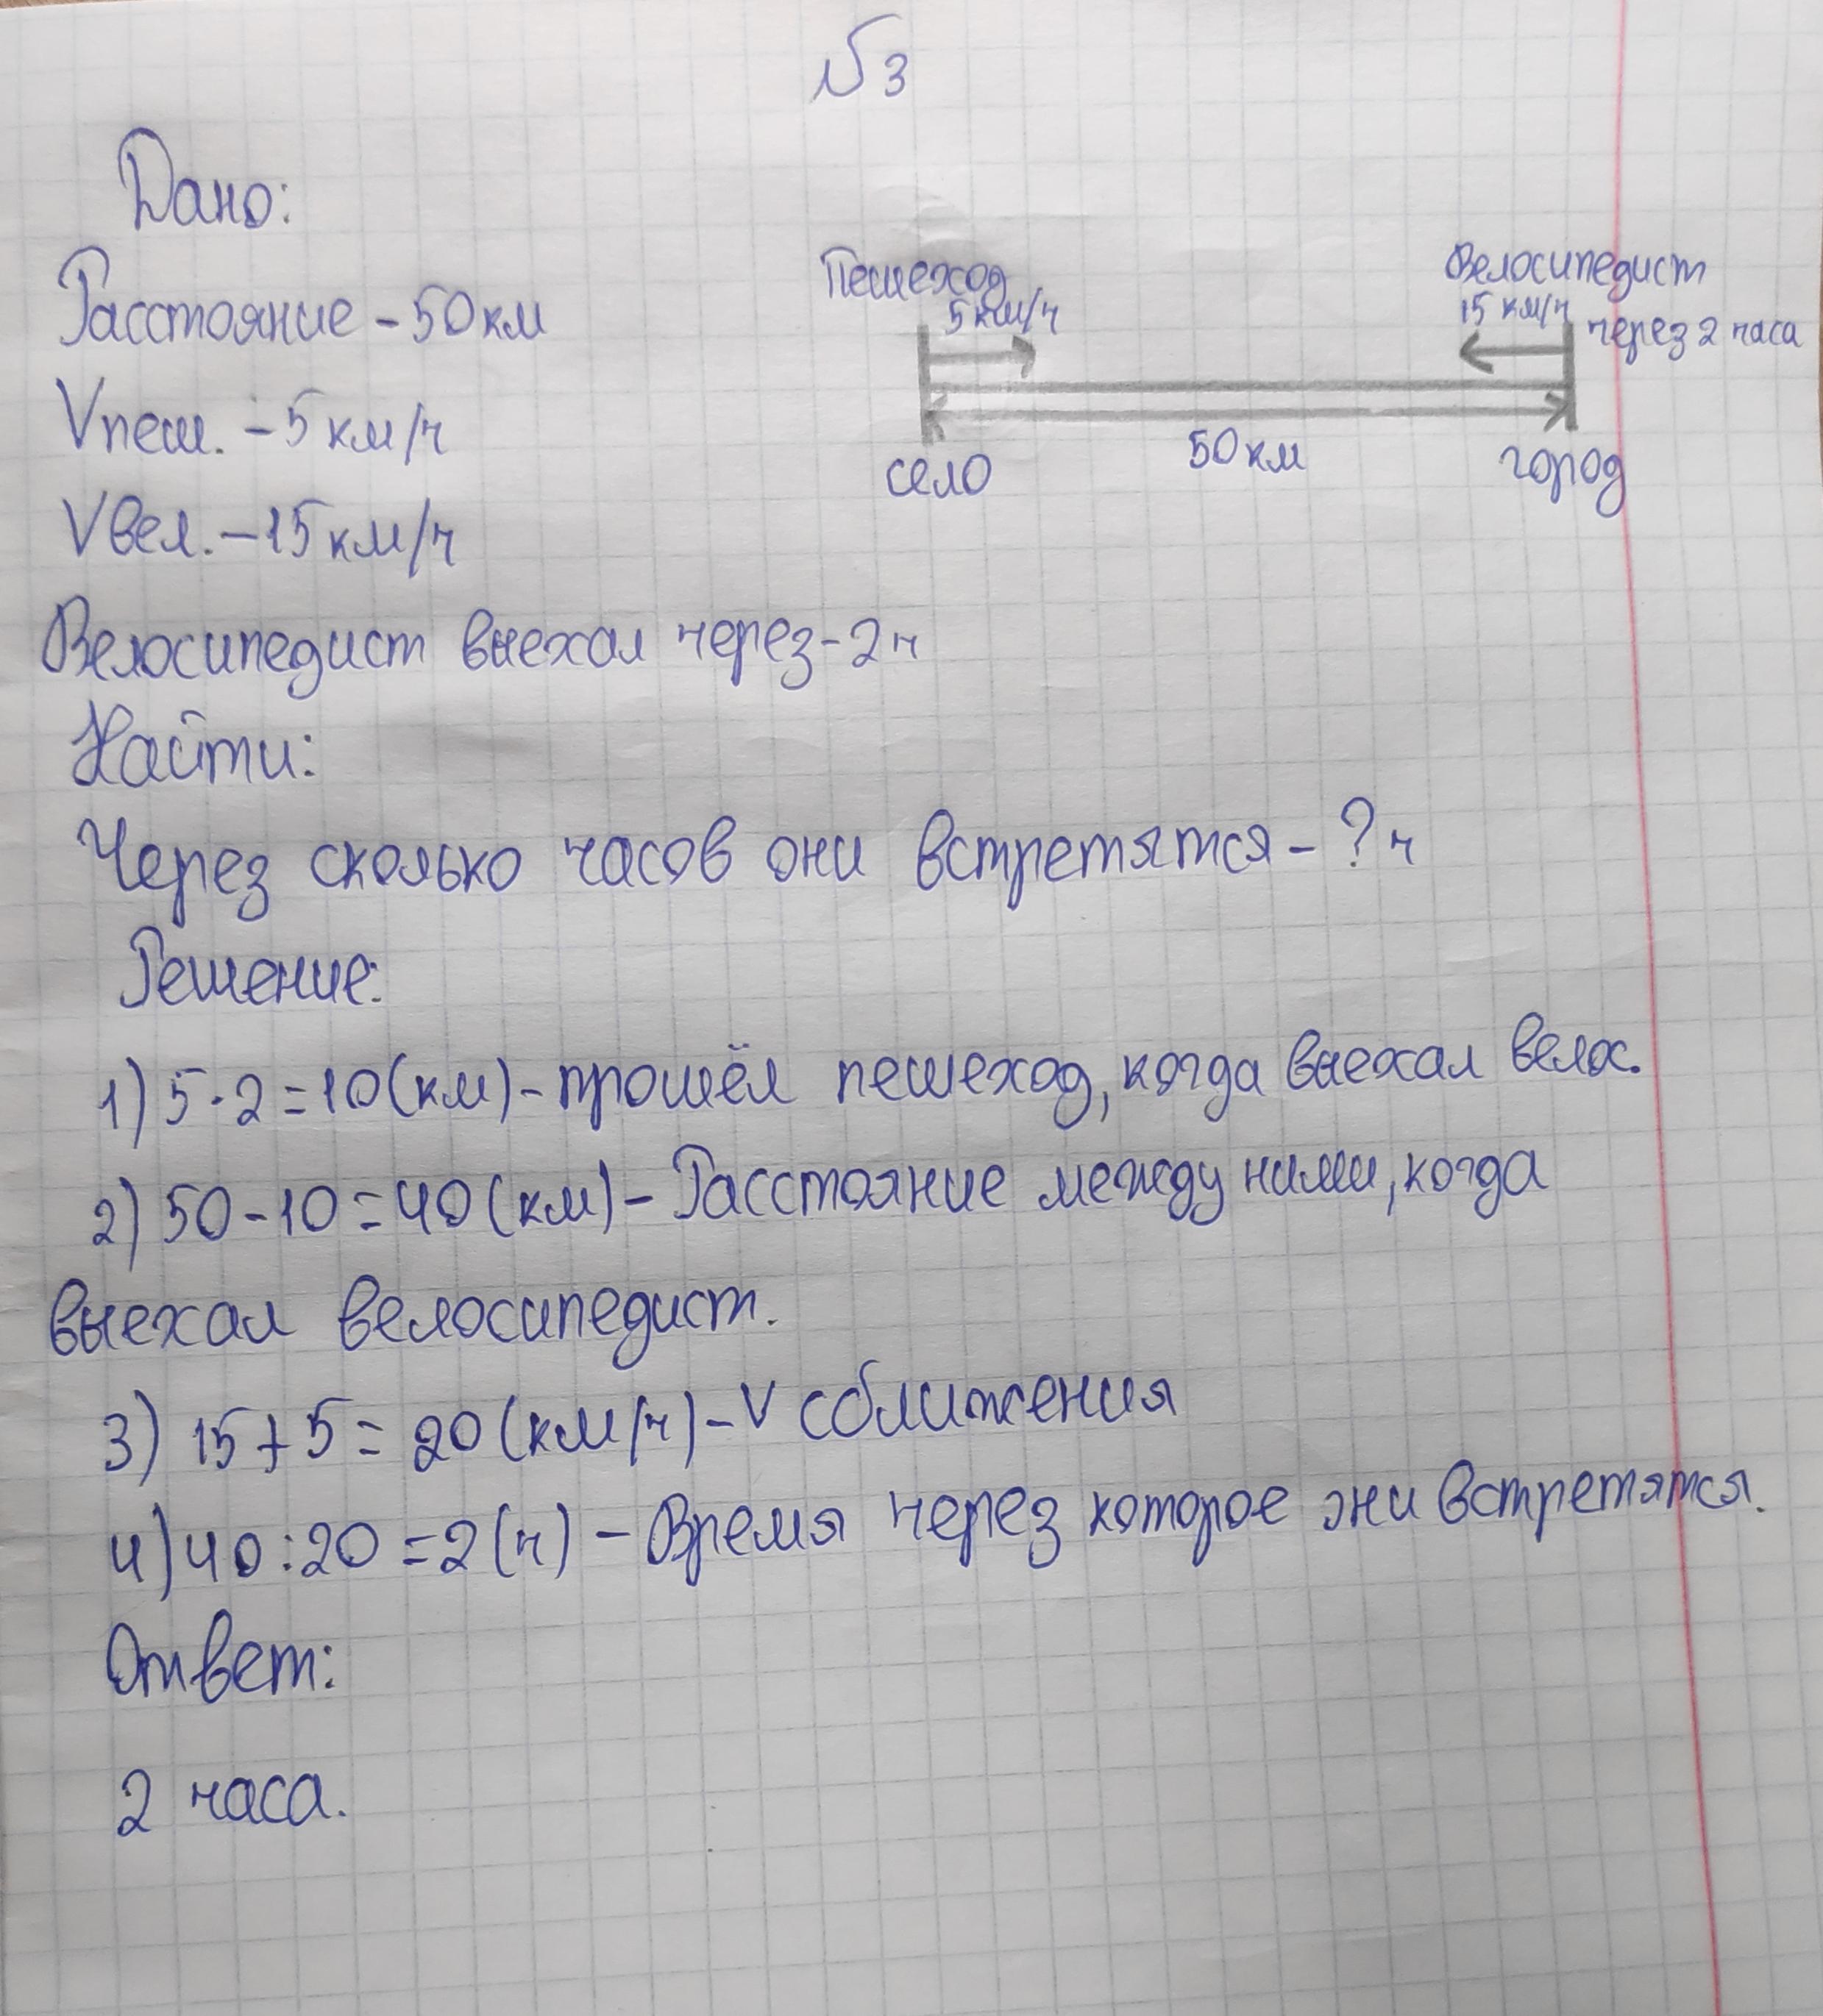 №3
Дано:
Расстояние - 50км
Vпеш. - 5 км/ч
Vвел. - 15 км/ч
Велосипедист выехал через - 2ч
Пешеход
5км/ч
Велосипедист
15 км/ч
через 2 часа
село
50км
город
Найти:
Через сколько часов они встретятся - ? ч
Решение:
1) 5 · 2 = 10(км) - прошёл пешеход, когда выехал велос.
2) 50 - 10 = 40 (км) - Расстояние между ними, когда
выехал велосипедист.
3) 15 + 5 = 20 (км/ч) - V сближения
4) 40 : 20 = 2 (ч) - Время через которое они встретятся.
Ответ:
2 часа.